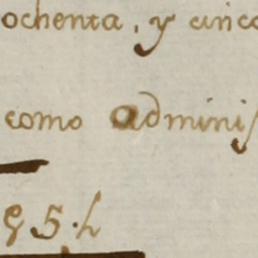 ochenta, y cinco
como adminis
95.L